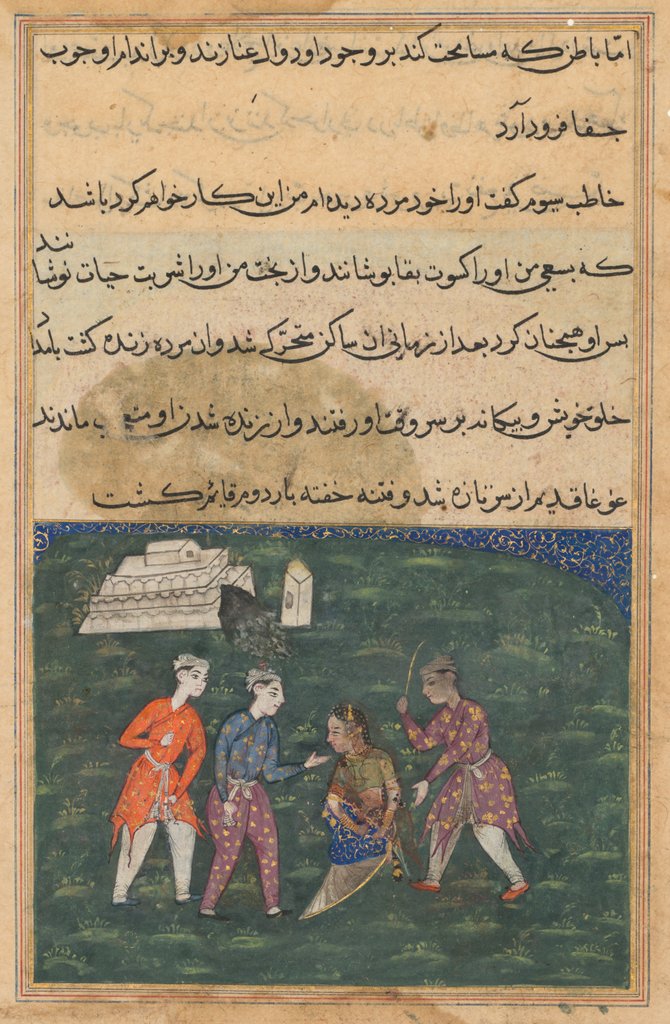 امّا باطن که مسامحت کند بر وجود او دوال عنا زند و بر اندام او چوب
جفا فرود آرد
خاطب سیوم گفت او را خود مرده دیده ام من این کار خواهم کرد باشد
که بسعی من او را کسوت بقا پوشانند و از بخت من او را شربت حیات نوشانند
پس او همچنان کرد بعد از زمانی ان ساکن متحرّک شد وان مرده زنده گشت بامداد
خلق خویش و بیکانه بر سر وقت او رفتند و از زنده شدن او متعجب ماندند
غوغا قدیم از سر تازه شد و فتنه خفته بار دوم قایم گشت